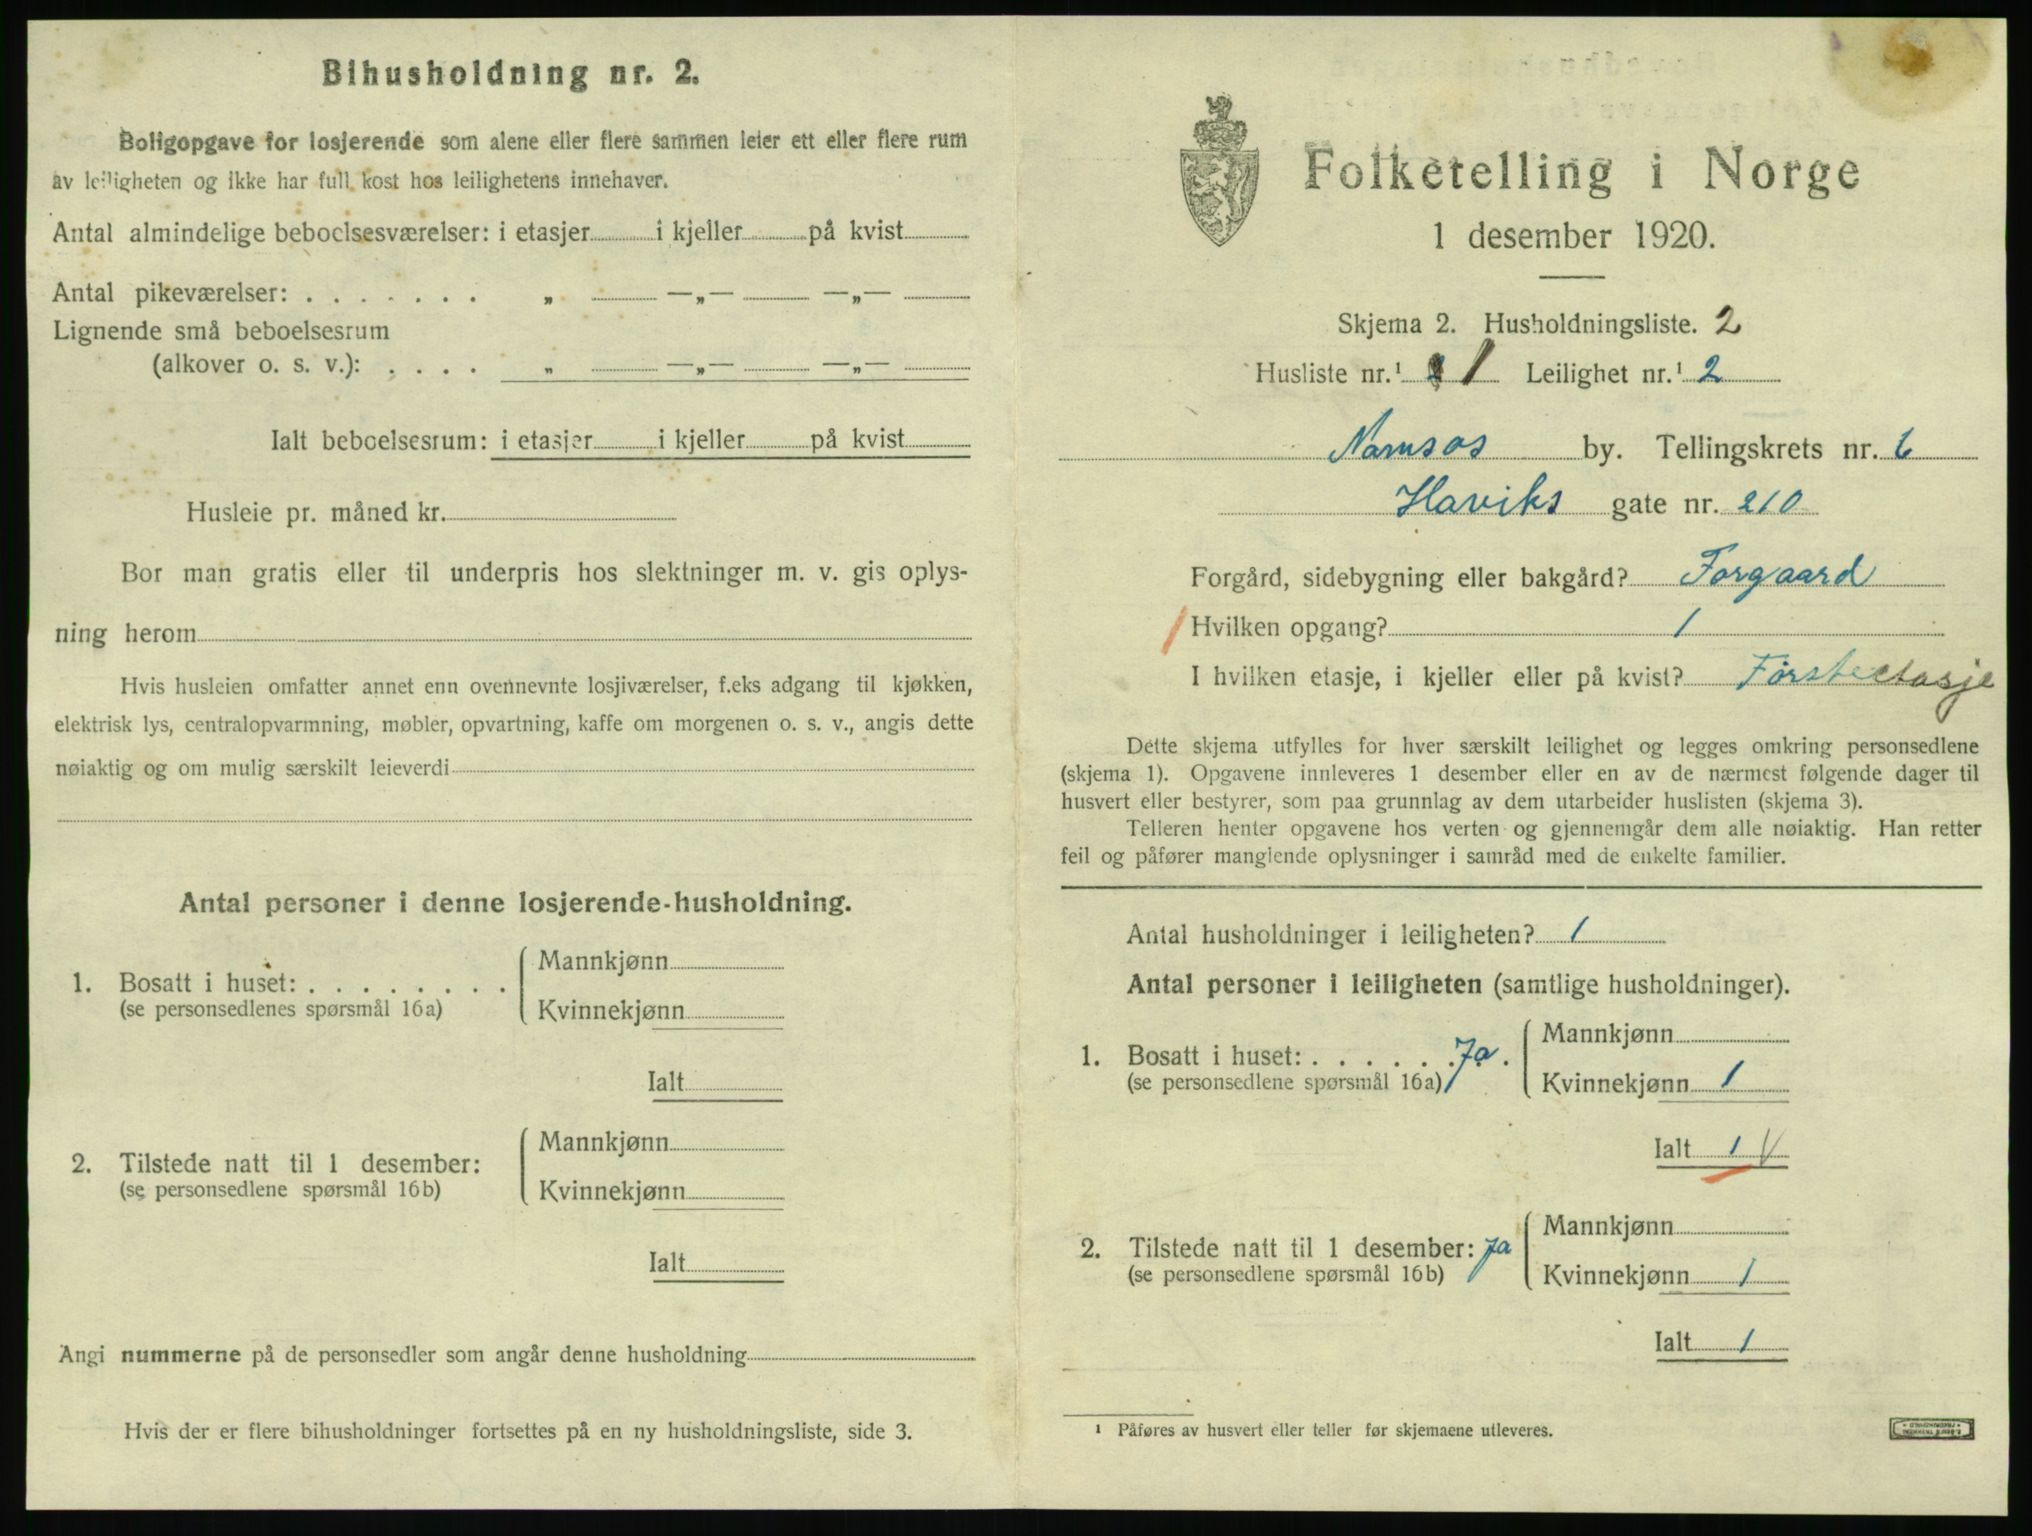 Bihusholdning nr. 2.
Boligopgave for losjerende som alene eller flere sammen leier ett eller flere rum
av leiligheten og ikke har full kost hos leilighetens innehaver.
Antal almindelige beboelsesværelser: i etasjer i kjeller på kvist
Antal pikeværelser: . . . . . . . „ —„— —„—
Lignende små beboelsesrum
(alkover o. s. v.): . . . . „ —„— —„—
Ialt beboelsesrum: i etasjer i kjeller på kvist
Husleie pr. måned kr.
Bor man gratis eller til underpris hos slektninger m. v. gis oplys-
ning herom
Hvis husleien omfatter annet enn ovennevnte losjiværelser, f.eks adgang til kjøkken,
elektrisk lys, centralopvarmning, møbler, opvartning, kaffe om morgenen o. s. v., angis dette
nøiaktig og om mulig særskilt leieverdi
Antal personer i denne losjerende-husholdning.
1. Bosatt i huset: . . . . . . . .
(se personsedlenes spørsmål 16a)
Mannkjønn
Kvinnekjønn
Ialt
2. Tilstede natt til 1 desember:
(se personsedlene spørsmål 16b)
Mannkjønn
Kvinnekjønn
Ialt
Angi nummerne på de personsedler som angår denne husholdning
Hvis der er flere bihusholdninger fortsettes på en ny husholdningsliste, side 3.
Folketelling i Norge
1 desember 1920.
Skjema 2. Husholdningsliste. 2
Husliste nr.¹ 1 Leilighet nr.¹ 2
Namsos by. Tellingskrets nr. 6
Haviks gate nr. 210
Forgård, sidebygning eller bakgård? Forgaard
Hvilken opgang? 1
I hvilken etasje, i kjeller eller på kvist? Førsteetasje
Dette skjema utfylles for hver særskilt leilighet og legges omkring personsedlene
(skjema 1). Opgavene innleveres 1 desember eller en av de nærmest følgende dager til
husvert eller bestyrer, som paa grunnlag av dem utarbeider huslisten (skjema 3).
Telleren henter opgavene hos verten og gjennemgår dem alle nøiaktig. Han retter
feil og påfører manglende oplysninger i samråd med de enkelte familier.
Antal husholdninger i leiligheten? 1
Antal personer i leiligheten (samtlige husholdninger).
1. Bosatt i huset: . . . . . . Ja.
(se personsedlene spørsmål 16a)
Mannkjønn
Kvinnekjønn 1
Ialt 1 V
2. Tilstede natt til 1 desember: Ja
(se personsedlene spørsmål 16b)
Mannkjønn
Kvinnekjønn 1
Ialt 1
¹ Påføres av husvert eller teller før skjemaene utleveres.